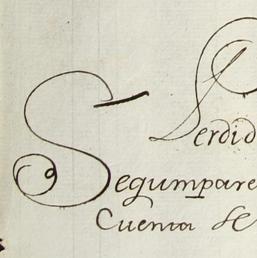 Serdid
Segumpare
Cuenta de